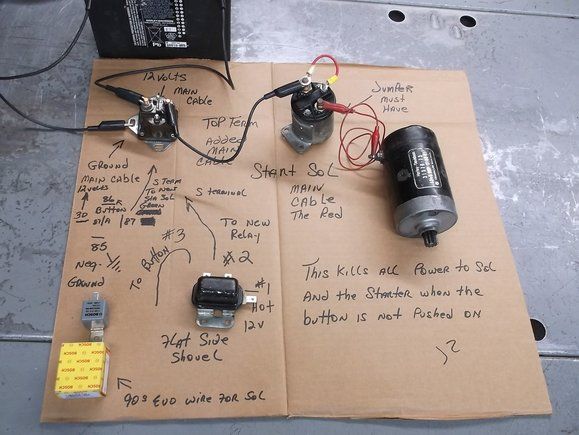 12 VOLTS
MAIN
CABLE
JUMPER
MUST
HAVE
TOP TERM
Added
MAIN
CABLE
GROUND
MAIN CABLE
12 VOLTS
S TERM
TO NEW
Sta Sol
Green
30
86
Button
87/A
/87
85
Neg-
GROUND
Start Sol
MAIN
CABLE
The Red
S terminal
TO NEW
Relay
#3
TO Button
#2
#1
Hot
12v
7Lat Side
Shovel
BOSCH
BOSCH
90s EVO WIRE FOR SOL
This Kills All Power to Sol
And the Starter when the
button is not Pushed on
Pb